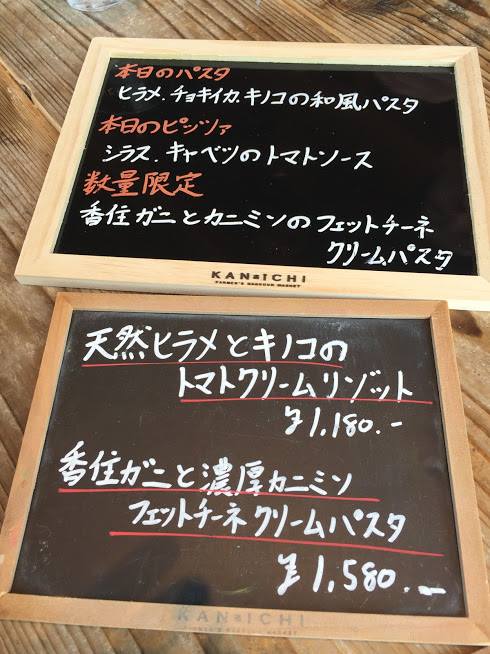 本日のパスタ
ヒラメ.チョキイカ.キノコの和風パスタ
本日のピッツァ
シラス.キャベツのトマトソース
数量限定
香住ガニとカニミソのフェットチーネ
クリームパスタ
KANaICHI
FARMER'S HARBOUR MARKET
天然ヒラメとキノコの
トマトクリームリゾット
¥1,180.-
香住ガニと濃厚カニミソ
フェットチーネクリームパスタ
¥1,580.-
KANaICHI